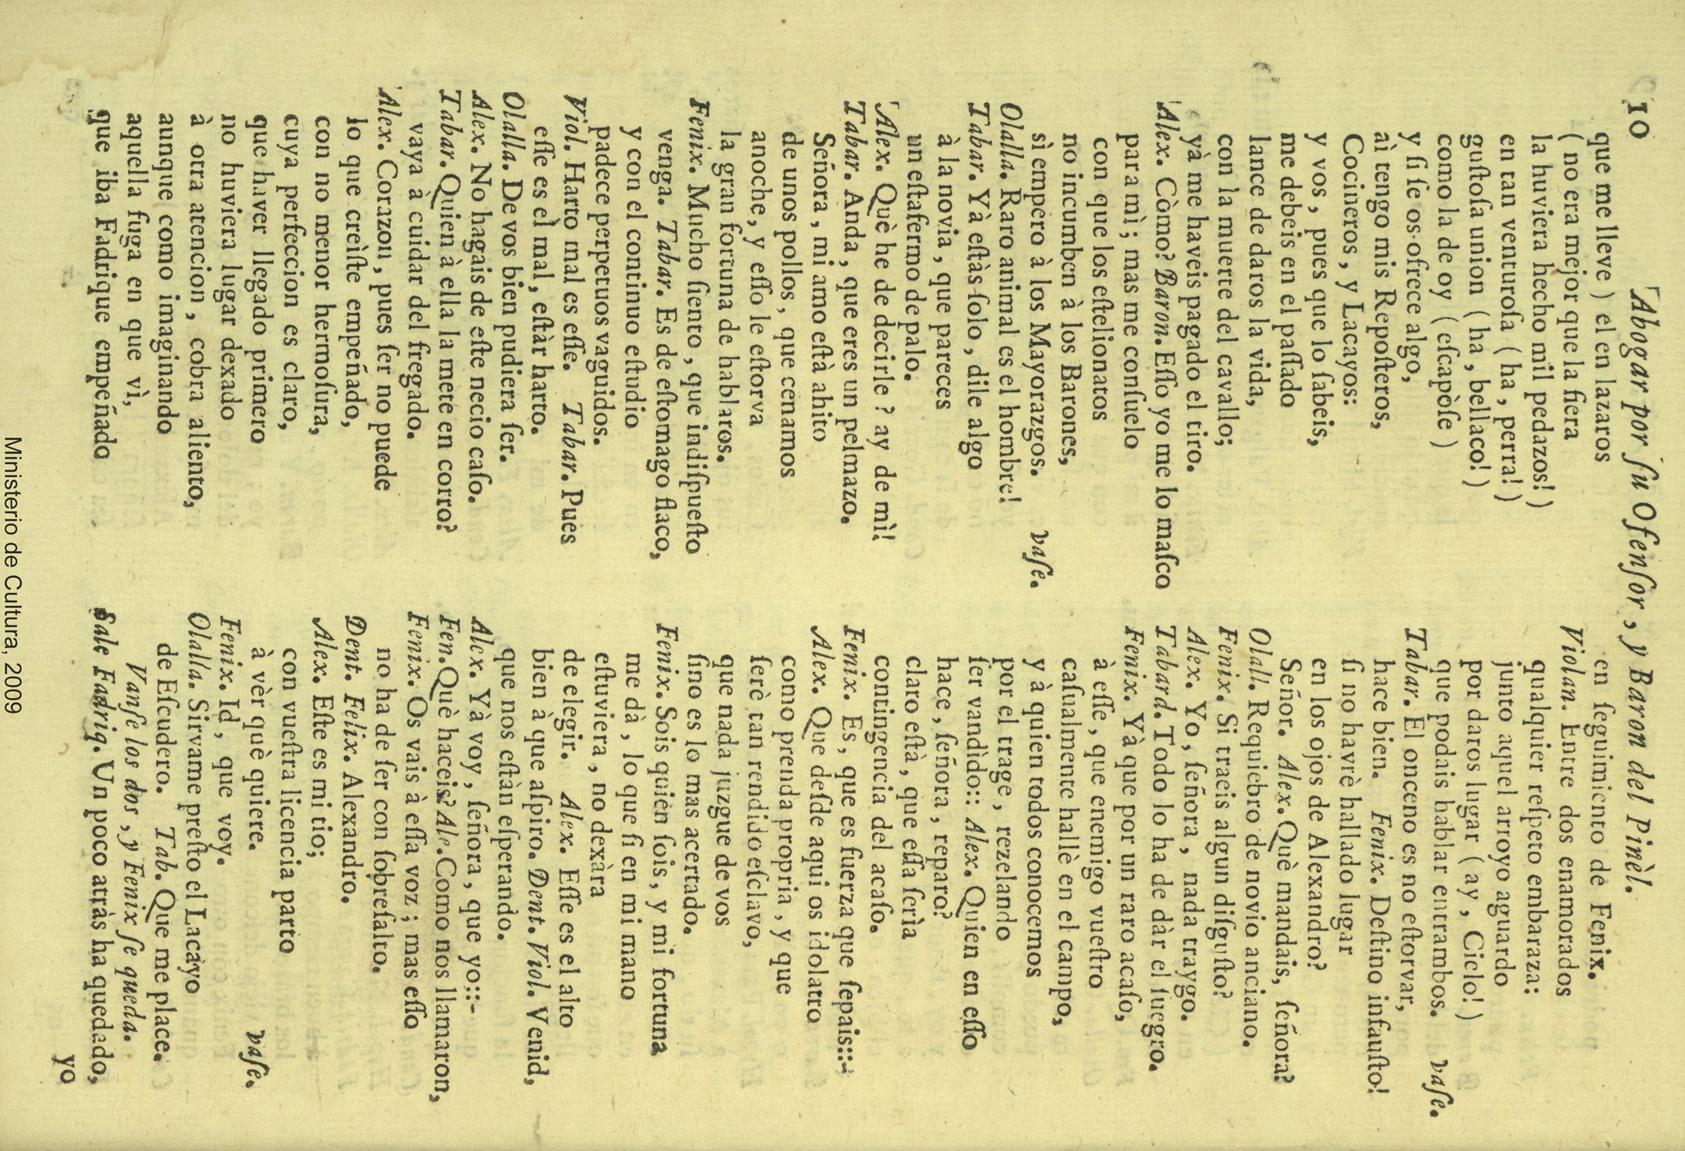 10 Abogar por ſu Ofenſor, y Baron del Pinèl.
que me lleve ) el en lazaros
( no era mejor que la fiera
la huviera hecho mil pedazos! )
en tan venturoſa ( ha, perra! )
guſtoſa union ( ha, bellaco! )
como la de oy ( eſcapòſe )
y ſi ſe os ofrece algo,
aì tengo mis Repoſteros,
Cocineros, y Lacayos:
y vos, pues que lo ſabeis,
me debeis en el paſſado
lance de daros la vida,
con la muerte del cavallo;
yà me haveis pagado el tiro.
Alex. Còmo? Baron. Eſſo yo me lo maſco
para mì; mas me conſuelo
con que los eſtelionatos
no incumben à los Barones,
sì empero à los Mayorazgos. vaſe.
Olalla. Raro animal es el hombre!
Tabar. Yà eſtàs ſolo, dile algo
à la novia, que pareces
un eſtafermo de palo.
Alex. Què he de decirle? ay de mì!
Tabar. Anda, que eres un pelmazo.
Señora, mi amo eſtà ahito
de unos pollos, que cenamos
anoche, y eſſo le eſtorva
la gran fortuna de hablaros.
Fenix. Mucho ſiento, que indiſpueſto
venga. Tabar. Es de eſtomago flaco,
y con el continuo eſtudio
padece perpetuos vaguidos.
Viol. Harto mal es eſſe. Tabar. Pues
eſſe es el mal, eſtàr harto.
Olalla. De vos bien pudiera ſer.
Alex. No hagais de eſte necio caſo.
Tabar. Quien à ella la mete en corro?
vaya à cuidar del fregado.
Alex. Corazon, pues ſer no puede
lo que creìſte empeñado,
con no menor hermoſura,
cuya perfeccion es claro,
que haver llegado primero
no huviera lugar dexado
à otra atencion, cobra aliento,
aunque como imaginando
aquella fuga en que vì,
que iba Fadrique empeñado
en ſeguimiento de Fenix.
Violan. Entre dos enamorados
qualquier reſpeto embaraza:
junto aquel arroyo aguardo
por daros lugar ( ay, Cielo! )
que podais hablar entrambos. vaſe.
Tabar. El onceno es no eſtorvar,
hace bien. Fenix. Deſtino infauſto!
ſi no havrè hallado lugar
en los ojos de Alexandro?
Señor. Alex. Què mandais, ſeñora?
Olall. Requiebro de novio anciano.
Fenix. Si traeis algun diſguſto?
Alex. Yo, ſeñora, nada traygo.
Tabard. Todo lo ha de dàr el ſuegro.
Fenix. Yà que por un raro acaſo,
à eſſe, que enemigo vueſtro
caſualmente hallè en el campo,
y à quien todos conocemos
por el trage, rezelando
ſer vandido:: Alex. Quien en eſſo
hace, ſeñora, reparo?
claro eſtà, que eſſa ſerìa
contingencia del acaſo.
Fenix. Es, que es fuerza que ſepais::-
Alex. Que deſde aqui os idolatro
como prenda propria, y que
ſerè tan rendido eſclavo,
que nada juzgue de vos
ſino es lo mas acertado.
Fenix. Sois quien ſois, y mi fortuna
me dà, lo que ſi en mi mano
eſtuviera, no dexàra
de elegir. Alex. Eſſe es el alto
bien à que aſpiro. Dent. Viol. Venid,
que nos eſtàn eſperando.
Alex. Yà voy, ſeñora, que yo::-
Fen. Què haceis? Ale. Como nos llamaron,
Fenix. Os vais à eſſa voz; mas eſſo
no ha de ſer con ſobreſalto.
Dent. Felix. Alexandro.
Alex. Eſte es mi tio;
con vueſtra licencia parto
à vèr què quiere. vaſe.
Fenix. Id, que voy.
Olalla. Sirvame preſto el Lacayo
de Eſcudero. Tab. Que me place.
Vanſe los dos, y Fenix ſe queda.
Sale Fadriq. Un poco atràs ha quedado,
yo
Ministerio de Cultura, 2009